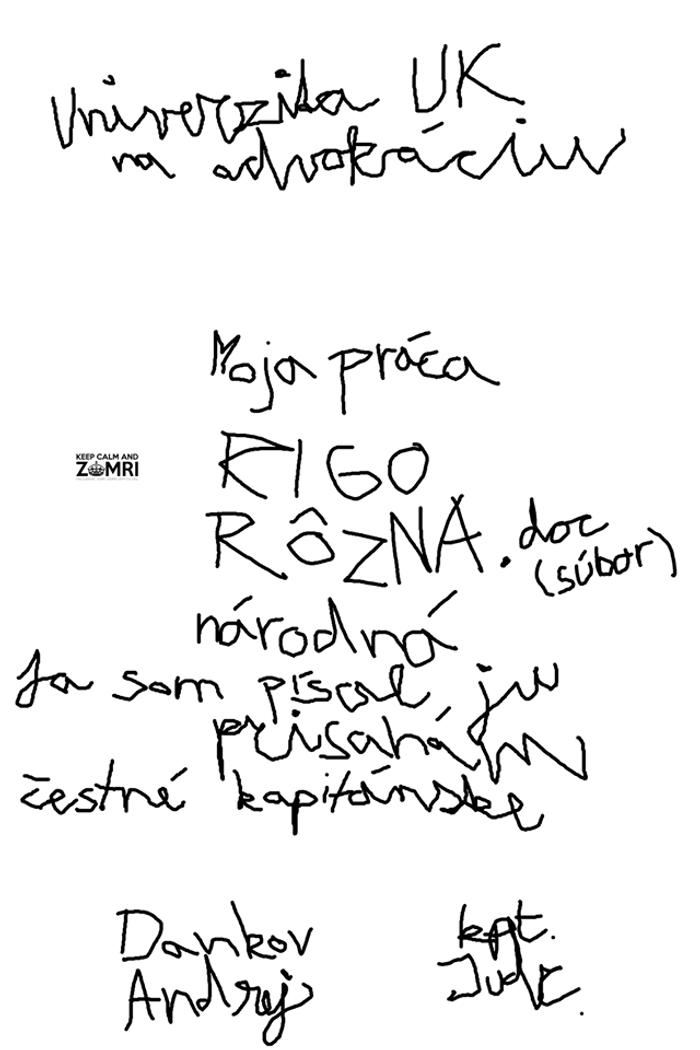 Univerzita UK
na advokráciu
Moja práca
KEEP CALM AND
ZOMRI
RIGO
RÔZNA.doc
(súbor)
národná
Ja som písal ju
prisahám
čestné kapitánske
Dankov kpt.
Andrej Judr.